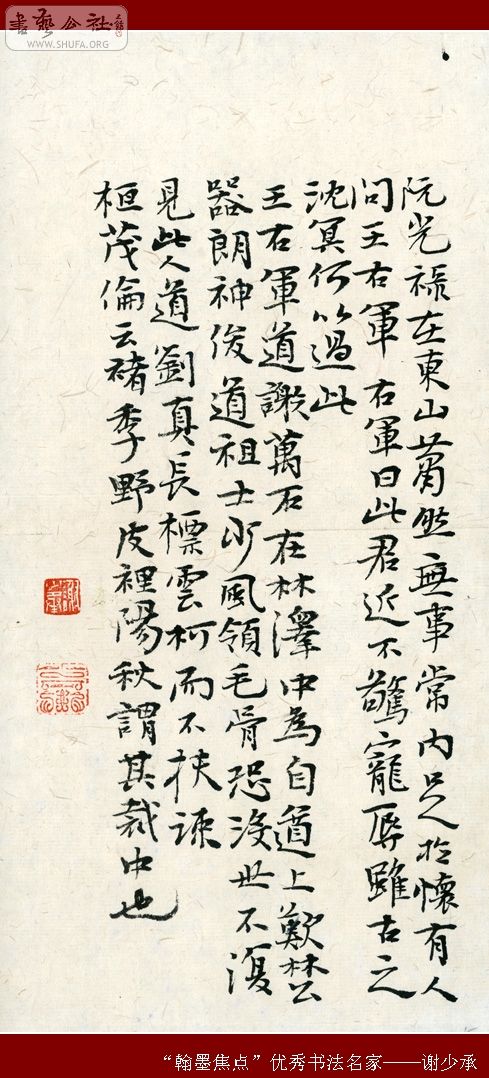 書藝公社
WWW.SHUFA.ORG
阮光禄在東山蕭然無事常内足於懷有人
問王右軍右軍曰此君近不驚寵辱雖古之
沈冥何以過此
王右軍道謝萬石在林澤中為自遒上歎林公
器朗神俊道祖士少風領毛骨恐没世不復
見此人道劉真長標雲柯而不扶疎
桓茂倫云褚季野皮裡陽秋謂其裁中也
“翰墨焦点”优秀书法名家——谢少承